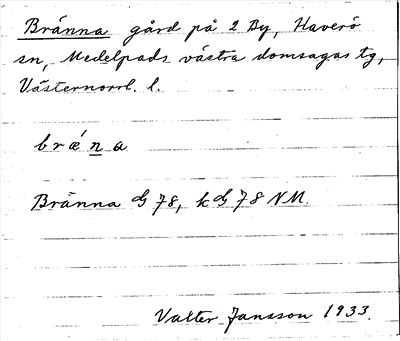 Bränna gård på 2 By, Haverö
sn, Medelpads västra domsagas tg,
Västernorrl. l.
bræ´na
Bränna G 78, kG 78 NM.
Valter Jansson 1933.